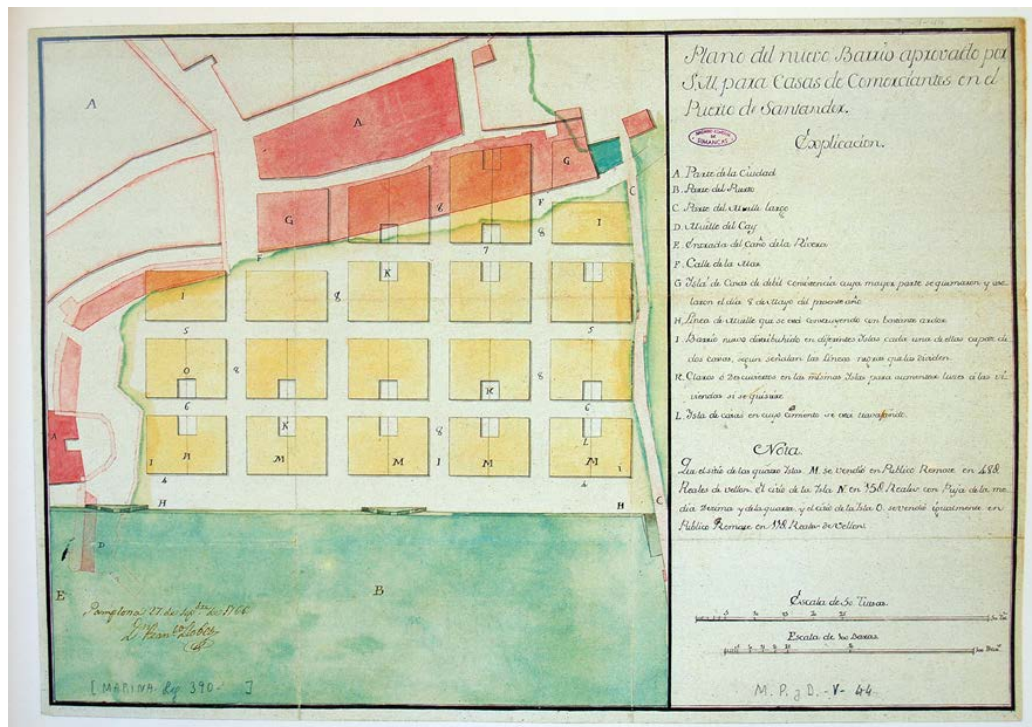 Plano del nuevo Barrio aprovado por
S.M. para Casas de Comerciantes en el
Puerto de Santander.
ARCHIVO GENERAL
DE
SIMANCAS
Explicacion.
A. Parte de la Ciudad
B. Parte del Puerto
C. Parte del Muelle largo
D. Muelle del Cay
E. Entrada del Caño de la Rivera
F. Calle de la Mar
G Isla de Casas de debil consistencia cuya mayor parte se quemaron y
laron el dia 8 de Mayo del presente año
H. Linea de Muelle que se está construyendo con bastante ardor
I. Barrio nuevo distribuhido en diferentes Islas cada una de ellas capaz de
dos casas, segun señalan las lineas negras que las dividen.
K. Claros ó Descuviertos en las mismas Islas para aumentar luces á las vi-
viendas si se quisiere
L. Isla de casas en cuyo cimiento se está travajando.
Nota.
Que el sitio de las quatro Islas M. se vendió en Publico Remate en
Reales de vellon. El sitio de la Isla N. en Reales con Puja de la me-
dia Dezima y de la quarta, y el sitio de la Isla O. se vendió igualmente en
Publico Remate en Reales de vellon.
Escala de 50 Tuesas
Escala de 100 Baras
M. P. y D. - V - 44
A
A
G
G
8
F
C
F
7
8
I
K
I
8
5
5
O
8
K
8
6
6
K
8
L
N
M
M
I
M
M
I
I
4
4
H
H
C
A
D
E
B
Pamplona 17 de Sepbre de 1766
[MARINA. Lg 390- ]